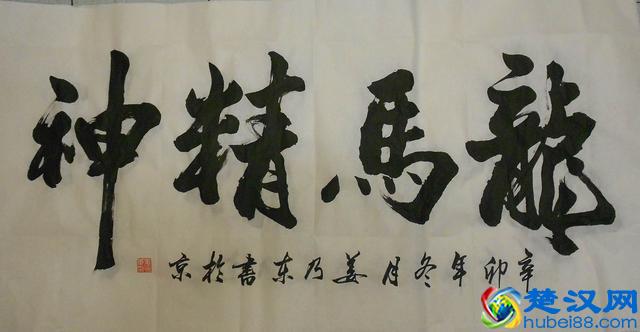 龍馬精神
辛卯年冬月姜乃东書於京
楚汉网
hubei88.com